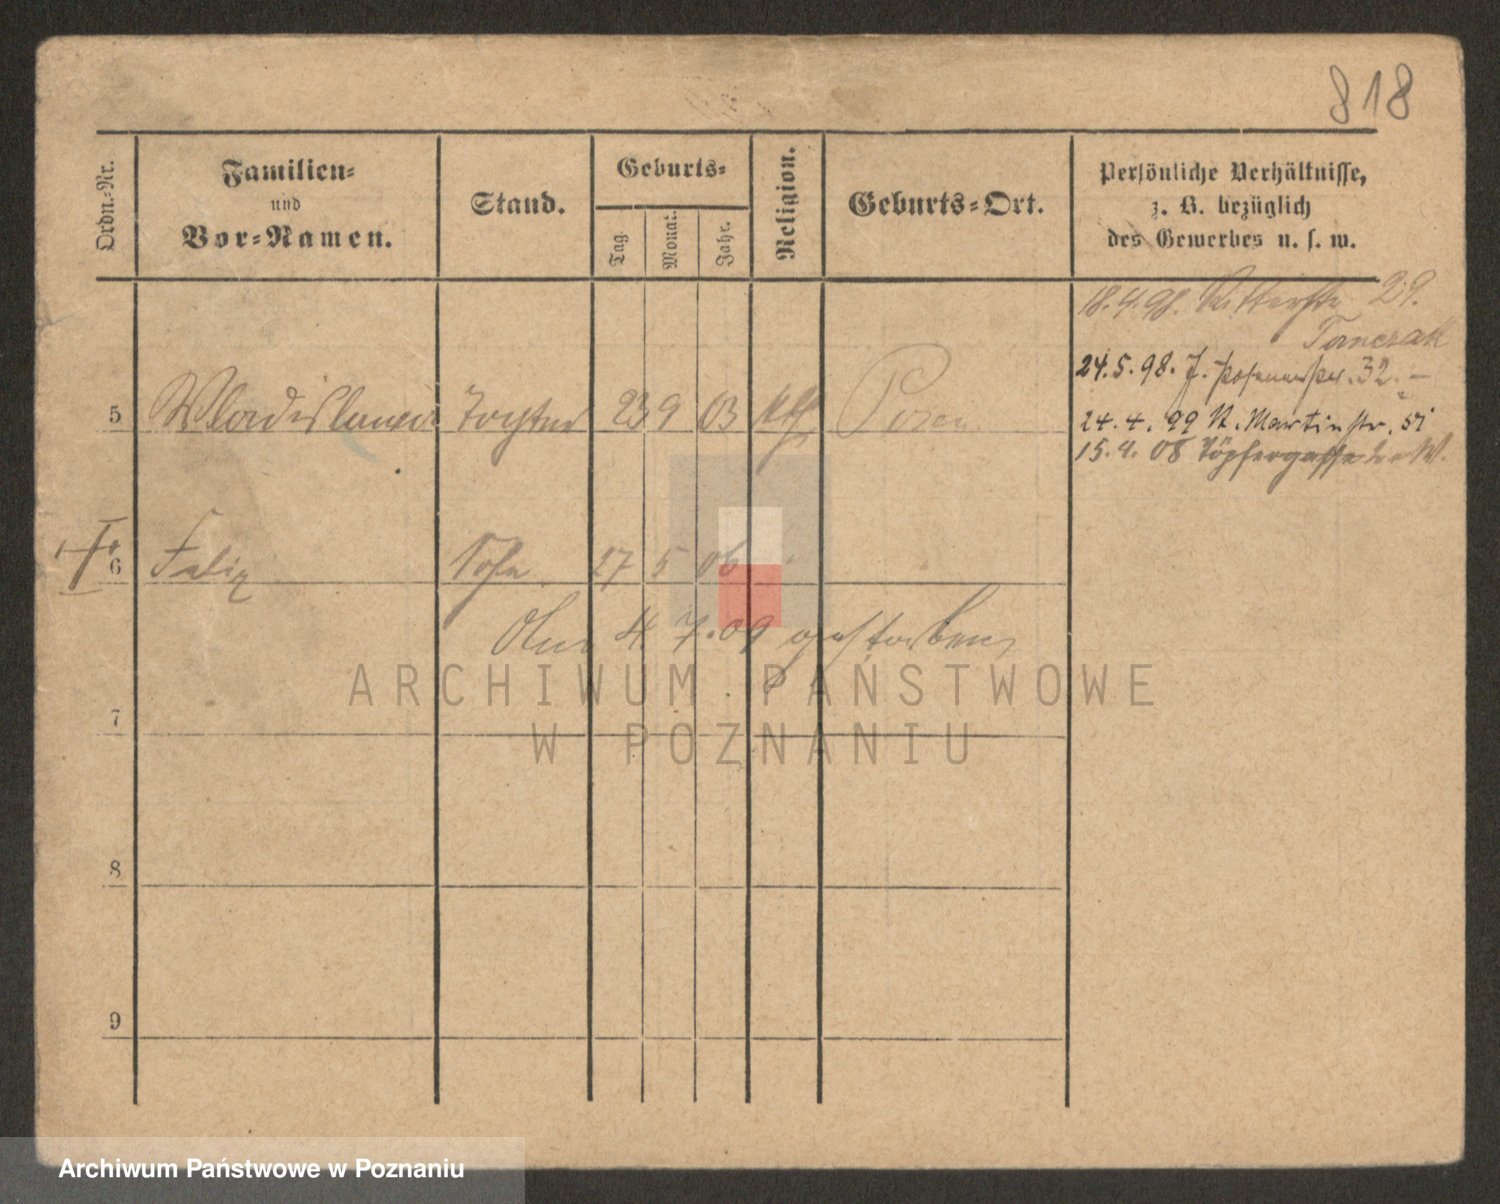 818
Ordn.-Nr.
Familien-
und
Vor-Namen.
Stand.
Geburts-
Tag.
Monat.
Jahr.
Religion.
Geburts-Ort.
Persönliche Verhältnisse,
z. B. bezüglich
des Gewerbes u. s. w.
18.4.98. Ritterstr. 29.
Tomczak
24.5.98. J. Posenerstr. 32. –
5 Wladislawa Tochter 23 9 03 kth Posen
24.4.99 St. Martinstr. 51
15.4.08 Töpfergasse
6 Felix Sohn 27 5 06 "
Am 4 7.09 gestorben
7
8
9
ARCHIWUM PAŃSTWOWE
W POZNANIU
Archiwum Państwowe w Poznaniu